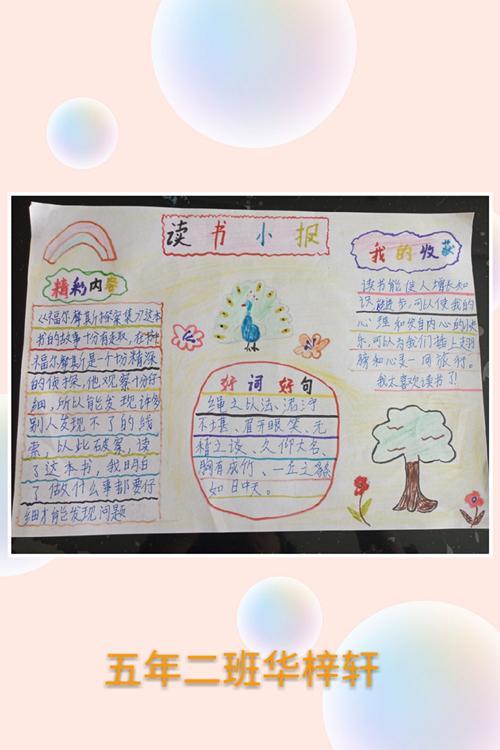 读书小报
精彩内容
《福尔摩斯探案集》这本
书的故事十分有趣,在书中
福尔摩斯是个十分精深
的侦探,他观察十分仔
细,所以能发现许多
别人发现不了的线
索,以此破案,读
了这本书,我明白
了做什么事都要仔
细才能发现问题
好词好句
绳之以法、
不焦、眉开眼笑、无
稽之谈、久仰大名、
胸有成竹、一丘之貉
如日中天。
我的收获
读书能使人增长知
识 进步,可以使我的
心 和发自内心的快
乐,可以为我们插上翅
膀和心灵一同旅行。
我太喜欢读书了!
五年二班华梓轩